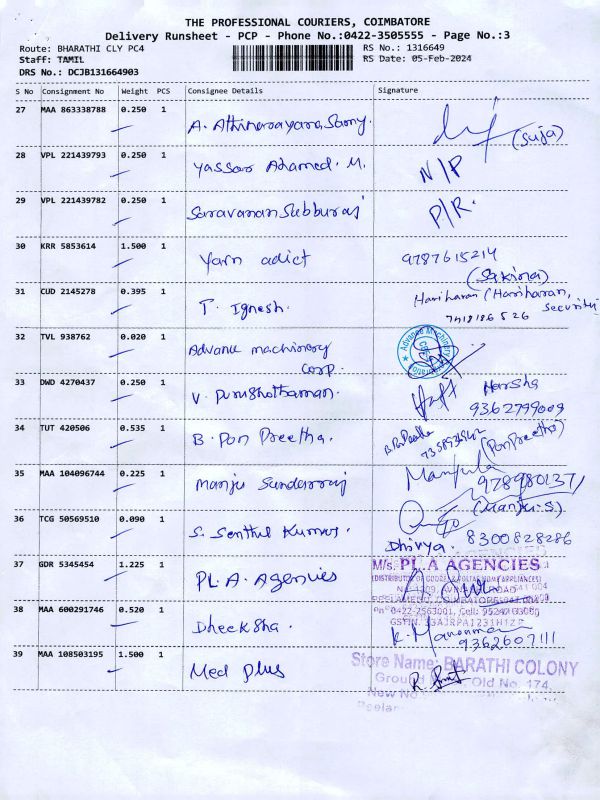 THE PROFESSIONAL COURIERS, COIMBATORE
Delivery Runsheet - PCP - Phone No.:0422-3505555 - Page No.:3
Route: BHARATHI CLY PC4 RS No.: 1316649
Staff: TAMIL RS Date: 05-Feb-2024
DRS No.: DCJB131664903
S No Consignment No Weight PCS Consignee Details Signature
27 MAA 863338788 0.250 1 A. Athinarayana Samy. (Suja)
28 VPL 221439793 0.250 1 Yassar Ahamed. M. N/P
29 VPL 221439782 0.250 1 Saravanan Subburaj P/R.
30 KRR 5853614 1.500 1 Yarn adict 9787615214
(Sakina)
31 CUD 2145278 0.395 1 T. Ignesh. Hariharan (Hariharan,
Security
7418186526
32 TVL 938762 0.020 1 Advance machinery
Corp. Advance Machinery
33 DWD 4270437 0.250 1 V. Purushothaman. Harsha
9362799009
34 TUT 420506 0.535 1 B. Pon Preetha. (Pon Preetha)
35 MAA 104096744 0.225 1 Manju Sundarraj Manjula
9789801371
(Manju.S)
36 TCG 50569510 0.090 1 S. Senthil Kumar.
Dhivya. 8300828286
37 GDR 5345454 1.225 1 PL. A. Agencies M/s. PL.A AGENCIES
38 MAA 600291746 0.520 1 Dheeksha. K. 9362607111
39 MAA 108503195 1.500 1 Med plus Store Name: BARATHI COLONY
Ground Old No. 174,
New No